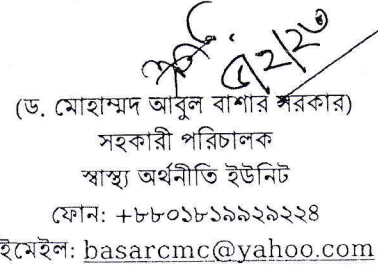 ৫/২/২৩
(ড. মোহাম্মদ আবুল বাশার সরকার)
সহকারী পরিচালক
স্বাস্থ্য অর্থনীতি ইউনিট
ফোন: +৮৮০১৮১৯৯২৯২২৪
ইমেইল: basarcmc@yahoo.com